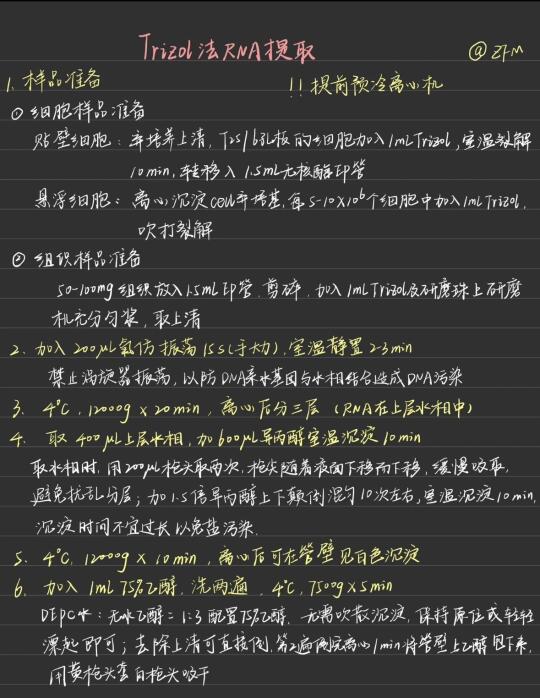 Trizol法RNA提取 @ZHM
1. 样品准备 !! 提前预冷离心机
① 细胞样品准备
贴壁细胞：弃培养上清，T25/6孔板的细胞加入1mLTrizol，室温裂解
10min，转移入1.5mL无核酶EP管
悬浮细胞：离心沉淀cell弃培基，每5-10×10⁶个细胞中加入1mLTrizol，
吹打裂解
② 组织样品准备
50-100mg组织放入1.5mLEP管，剪碎，加入1mLTrizol及研磨珠上研磨
机充分匀浆，取上清
2. 加入200μL氯仿振荡15s(手大力)，室温静置2-3min
禁止涡旋器振荡，以防DNA亲水基因与水相结合造成DNA污染
3. 4℃，12000g×20min，离心后分三层（RNA在上层水相中）
4. 取400μL上层水相，加600μL异丙醇室温沉淀10min
取水相时，用200μL枪头取两次，枪尖随着液面下移而下移，缓慢吸取，
避免扰乱分层；加1.5倍异丙醇上下颠倒混匀10次左右，室温沉淀10min，
沉淀时间不宜过长以免盐污染.
5. 4℃，12000g×10min，离心后可在管壁见白色沉淀
6. 加入1mL75%乙醇，洗两遍，4℃，7500g×5min
DEPC水：无水乙醇=1:3配置75%乙醇，无需吹散沉淀，保持原位或轻轻
漂起即可；去除上清可直接倒，第2遍倒完离心1min将管壁上乙醇甩下来，
用黄枪头套白枪头吸干